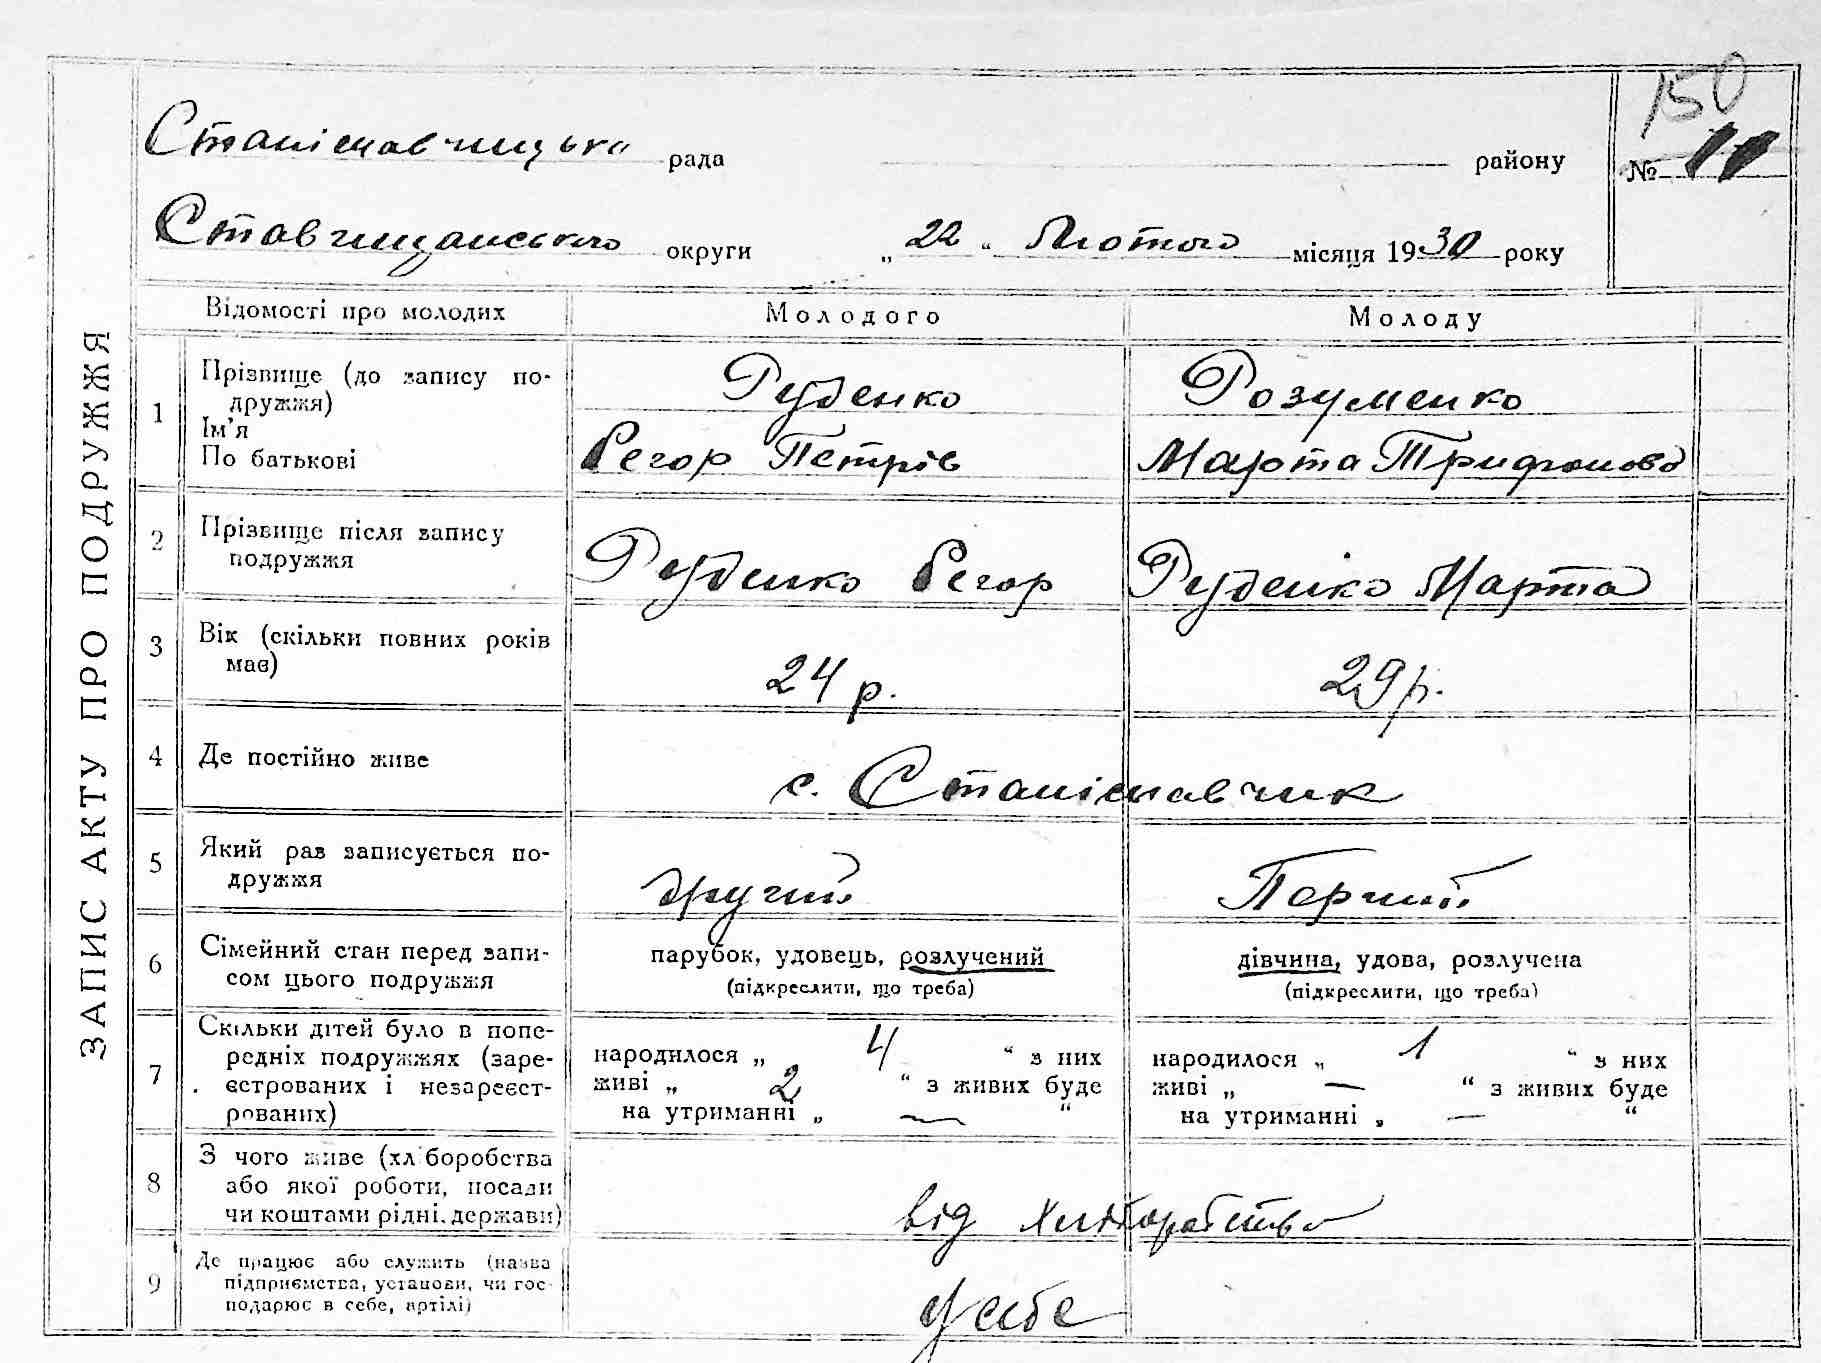 150
Станіславчицька рада району № 11
Ставчищанського округи „ 22 “ Лютого місяця 1930 року
ЗАПИС АКТУ ПРО ПОДРУЖЖЯ
Відомості про молодих Молодого Молоду
1 Прізвище (до запису по-
дружжя) Руденко Розуменко
Ім’я
По батькові Єгор Петрів Марта Трифонова
2 Прізвище після запису
подружжя Руденко Єгор Руденко Марта
3 Вік (скільки повних років
має) 24 р. 29 р.
4 Де постійно живе с. Станіславчик
5 Який раз записується по-
дружжя другий Перший
6 Сімейний стан перед запи-
сом цього подружжя
парубок, удовець, розлучений
(підкреслити, що треба)
дівчина, удова, розлучена
(підкреслити, що треба)
7 Скільки дітей було в попе-
редніх подружжях (заре-
єстрованих і незареєст-
рованих)
народилося „ 4 “ з них
живі „ 2 “ з живих буде
на утриманні „ — “
народилося „ 1 “ з них
живі „ — “ з живих буде
на утриманні „ — “
8 З чого живе (хліборобства
або якої роботи, посади
чи коштами рідні, держави)
від хліборобства
9 Де працює або служить (назва
підприємства, установи, чи гос-
подарює в себе, артілі)
у себе